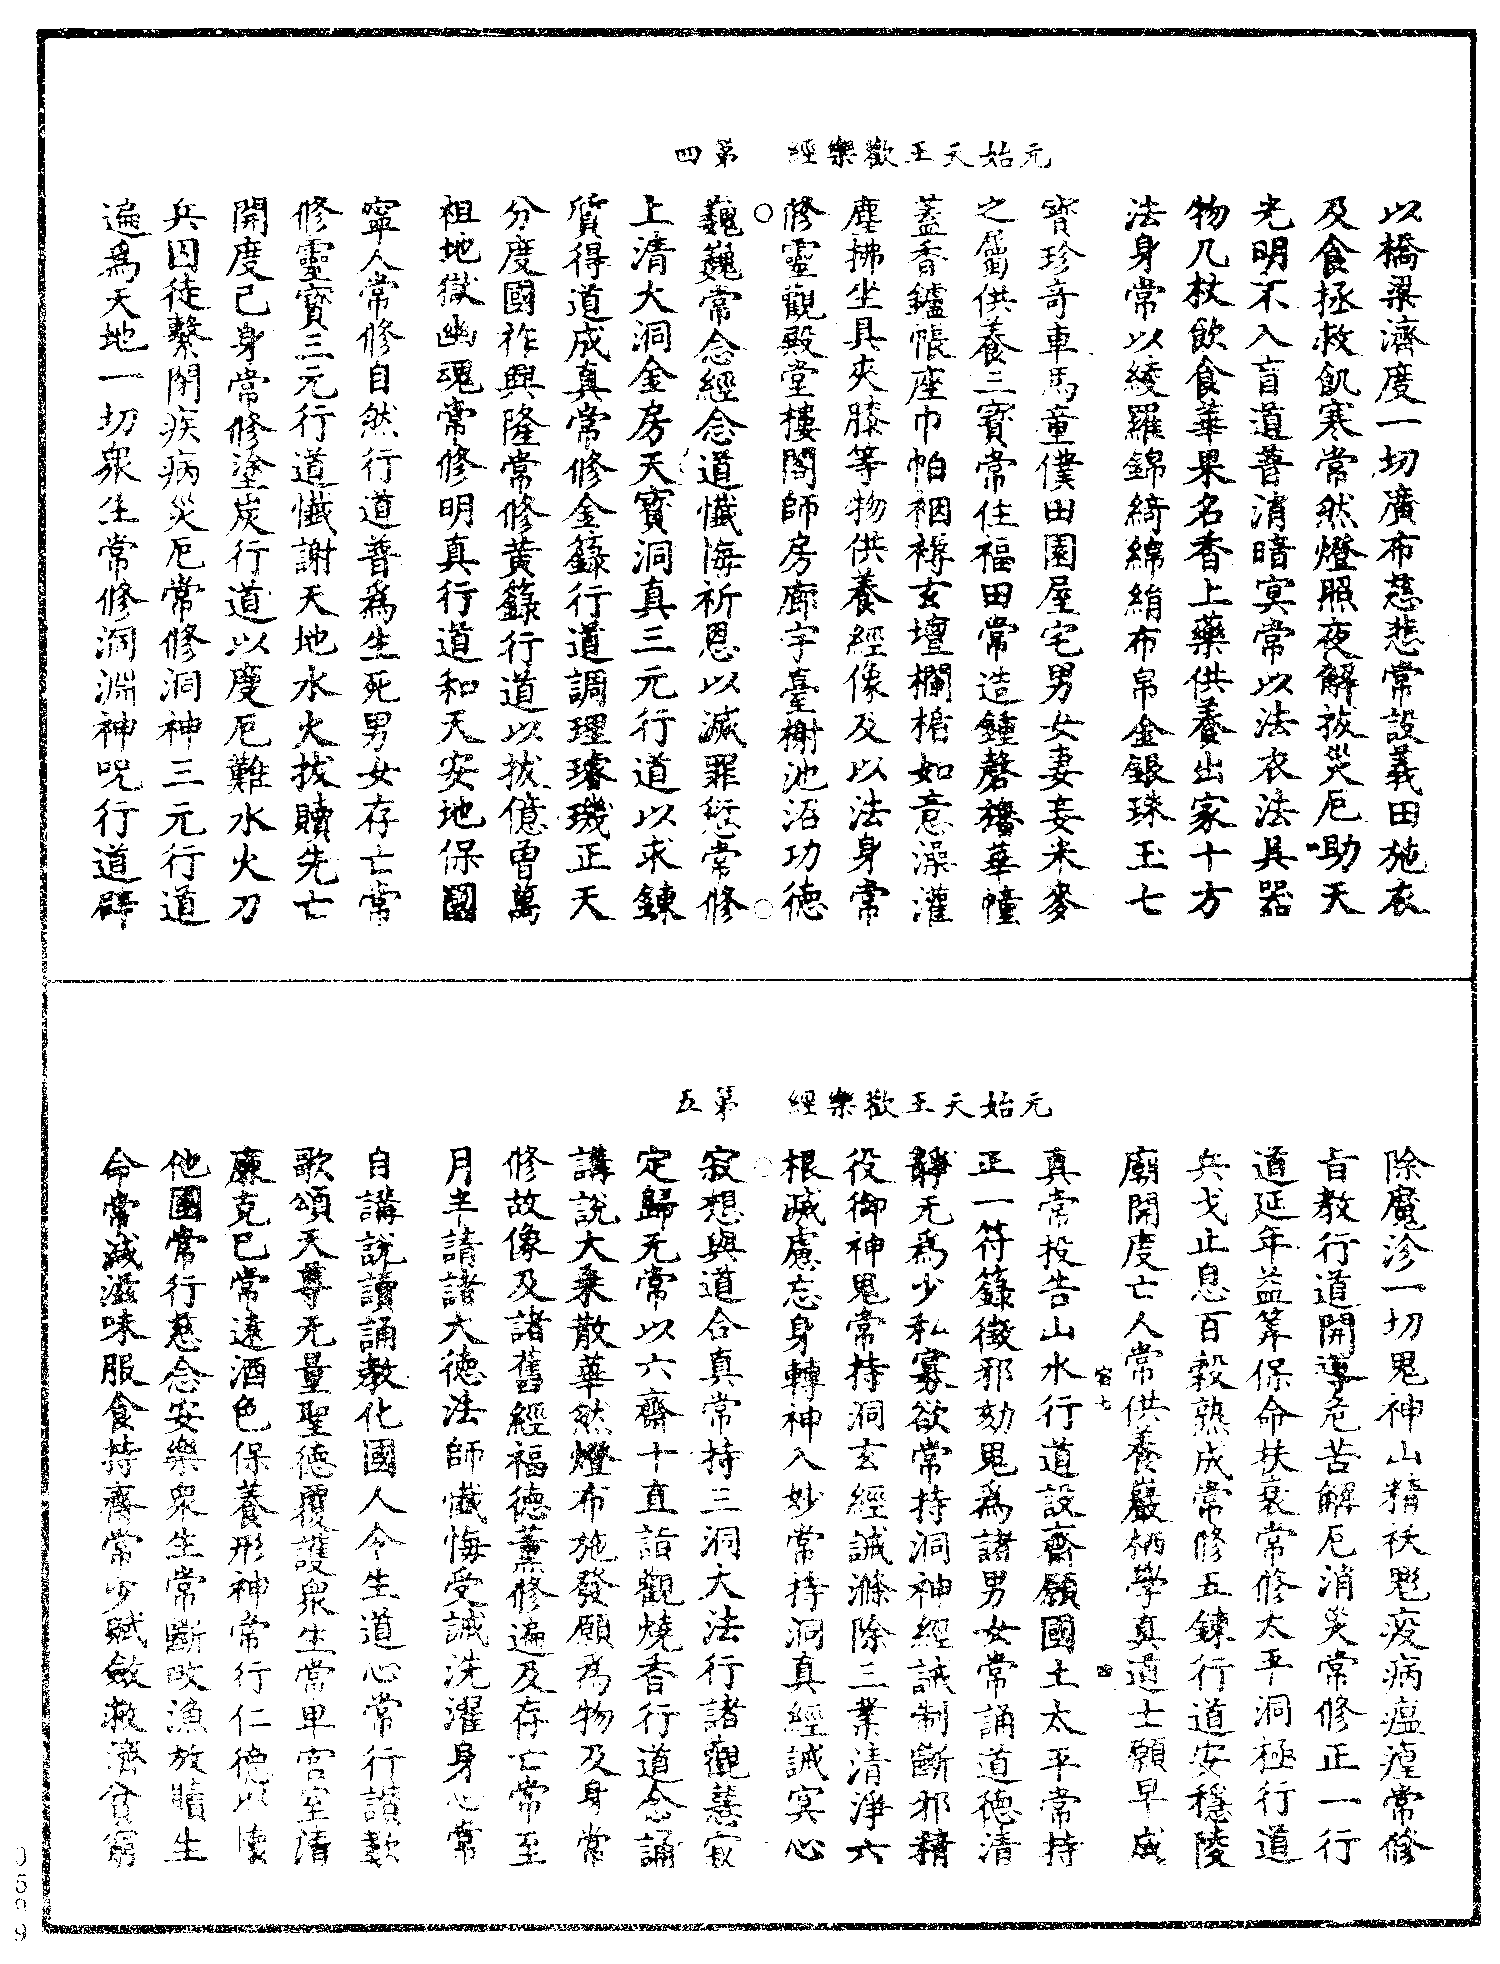 元始天王歡樂經　第四
以橋梁濟度一切廣布慈悲常設義田施衣
及食拯救飢寒常然燈照夜解祓災厄助天
光明不入盲道普消暗冥常以法衣法具器
物几杖飲食華果名香上藥供養出家十方
法身常以綾羅錦綺綿絹布帛金銀珠玉七
寶珍奇車馬童僕田園屋宅男女妻妾米麥
之屬供養三寶常住福田常造鍾磬旛華幢
蓋香鑪帳座巾帕裀褥玄壇欄楯如意澡灌
塵拂坐具夾膝等物供養經像及以法身常
修靈觀殿堂樓閣師房廊宇臺榭池沼功德
巍巍常念經念道懺悔祈恩以滅罪愆常修
上清大洞金房天寶洞真三元行道以求鍊
質得道成真常修金籙行道調理璿璣正天
分度國祚興隆常修黃籙行道以拔億曾萬
祖地獄幽魂常修明真行道和天安地保國
寧人常修自然行道普爲生死男女存亡常
修靈寶三元行道懺謝天地水火拔贖先亡
開度己身常修塗炭行道以度厄難水火刀
兵囚徒繫閉疾病災厄常修洞神三元行道
遍爲天地一切衆生常修洞淵神呪行道辟
元始天王歡樂經　第五
除魔沴一切鬼神山精祅魅疫病瘟㾮常修
旨教行道開導危苦解厄消災常修正一行
道延年益筭保命扶衰常修太平洞極行道
兵戈止息百穀熟成常修五鍊行道安穩陵
廟開度亡人常供養巖栖學真道士願早成
真常投告山水行道設齋願國土太平常持
正一符籙徵邪劾鬼爲諸男女常誦道德清
靜无爲少私寡欲常持洞神經誡制斷邪精
役御神鬼常持洞玄經誡滌除三業清淨六
根滅慮忘身轉神入妙常持洞真經誡冥心
寂想與道合真常持三洞大法行諸觀慧寂
定歸无常以六齋十直詣觀燒香行道念誦
講說大乘散華然燈布施發願爲物及身常
修故像及諸舊經福德薰修遍及存亡常至
月半請諸大德法師懺悔受誡洗濯身心常
自講說讀誦教化國人令生道心常行讚歎
歌頌天尊无量聖德覆護衆生常卑宮室清
廉克己常遠酒色保養形神常行仁德以懷
他國常行慈念安樂衆生常斷畋漁放贖生
命常減滋味服食持齋常少賦斂救濟貧窮
官七
四
0599